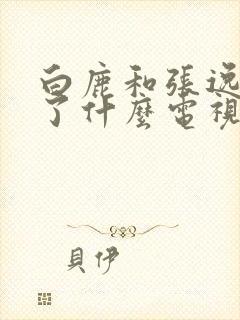 白鹿和張逸
了什麼電視
貝伊